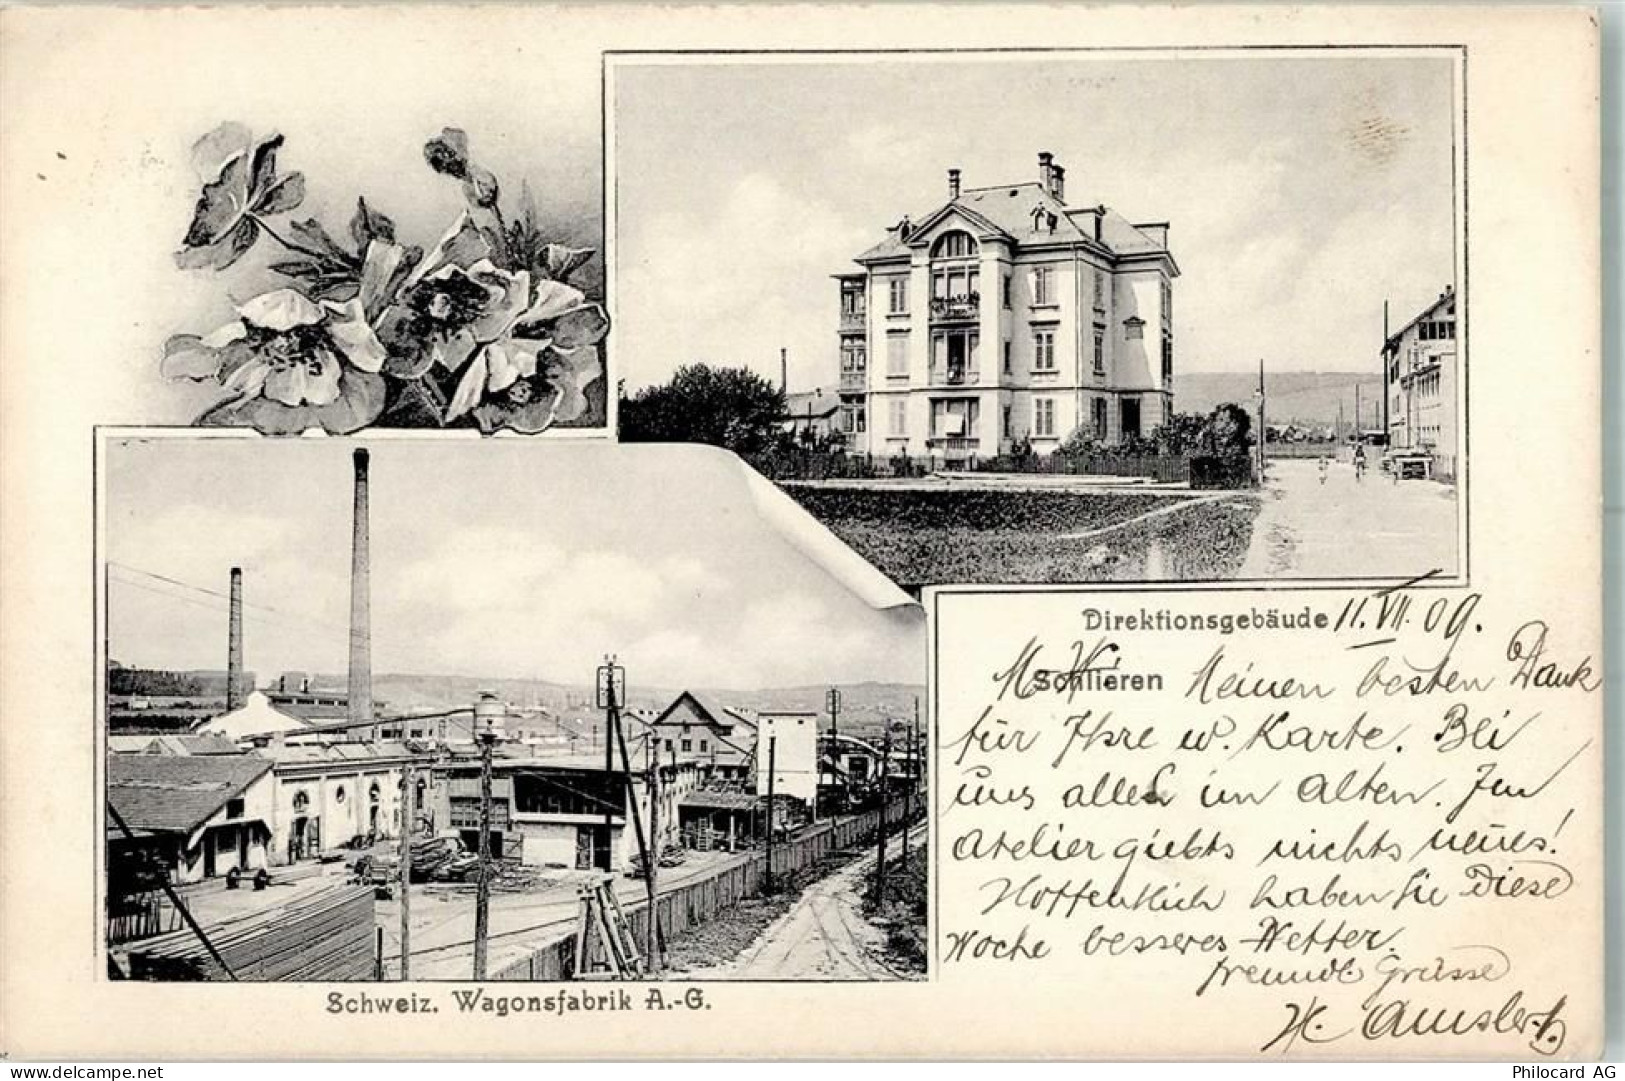 Direktionsgebäude 11. VII. 09.
Schlieren Meinen besten Dank
für Ihre w. Karte. Bei
uns alles im Alten. Im
Atelier giebts nichts neues!
Hoffentlich haben Sie Diese
Woche besseres Wetter.
freundl. Grüsse
H. Amsler
Schweiz. Wagonsfabrik A.-G.
Philocard AG